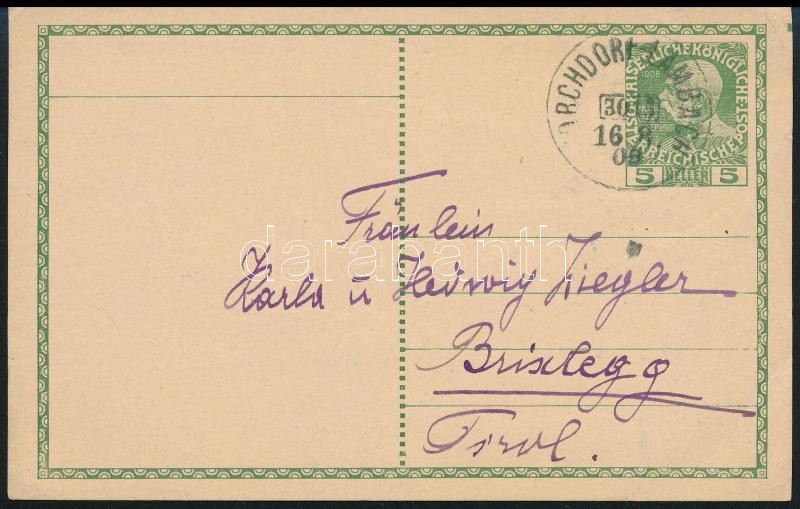 ORCHDORF-LAMBACH
30
16 8
09
KAISERLICHE KÖNIGLICHE
ÖSTERREICHISCHE POST
1908
5 HELLER 5
Fräulein
Karla u Hedwig Ziegler
Brixlegg
Tirol.
darabanth